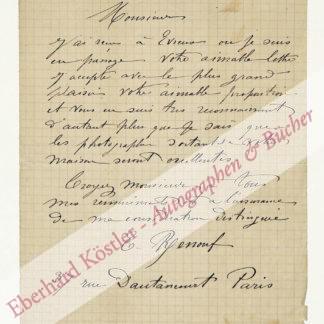 Monsieur
J'ai reçu à Evreux ou je suis
en passage votre aimable lettre
J'accepte avec le plus grand
plaisir votre aimable proposition
et vous en suis très reconnaissant
d'autant plus que je sais que
les photographies sortant de
maison seront excellentes.
Croyez Monsieur
mes remerciements à l'assurance
de ma considération distinguée
E. Renouf
rue Dautancourt Paris
Eberhard Köstler - Autographen & Bücher